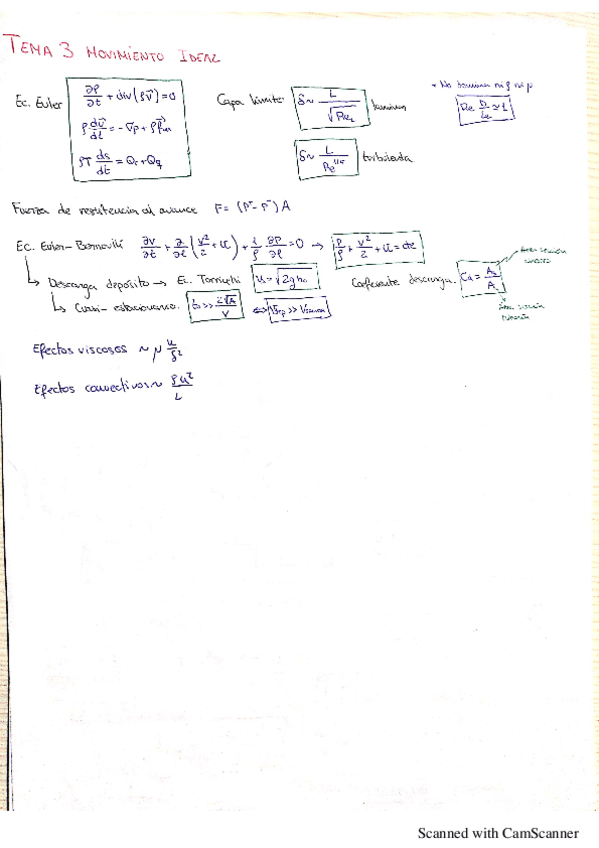 TEMA 3 MOVIMIENTO IDEAL
Ec. Euler ∂ρ/∂t + div(ρv⃗) = 0
ρ dv⃗/dt = -∇p + ρf⃗m
ρT ds/dt = Qr + Qq
Capa límite δ ~ L/√ReL laminar
δ ~ L/Re^1/5 turbulenta
+ No domina ni ρ ni μ
Re D/Le ≈ 1
Fuerza de resistencia al avance F = (P⁺ - P⁻) A
Ec. Euler-Bernoulli ∂v/∂t + ∂/∂l (v²/2 + U) + 1/ρ ∂P/∂l = 0 → P/ρ + v²/2 + U = cte
↳ Descarga depósito → Ec. Torricelli us = √2gho
Coeficiente descarga. Cd = As/A
Área sección
Área sección
↳ Cuasi-estacionario.
Efectos viscosos ~ μ u/δ²
Efectos convectivos ~ ρu²/L
Scanned with CamScanner